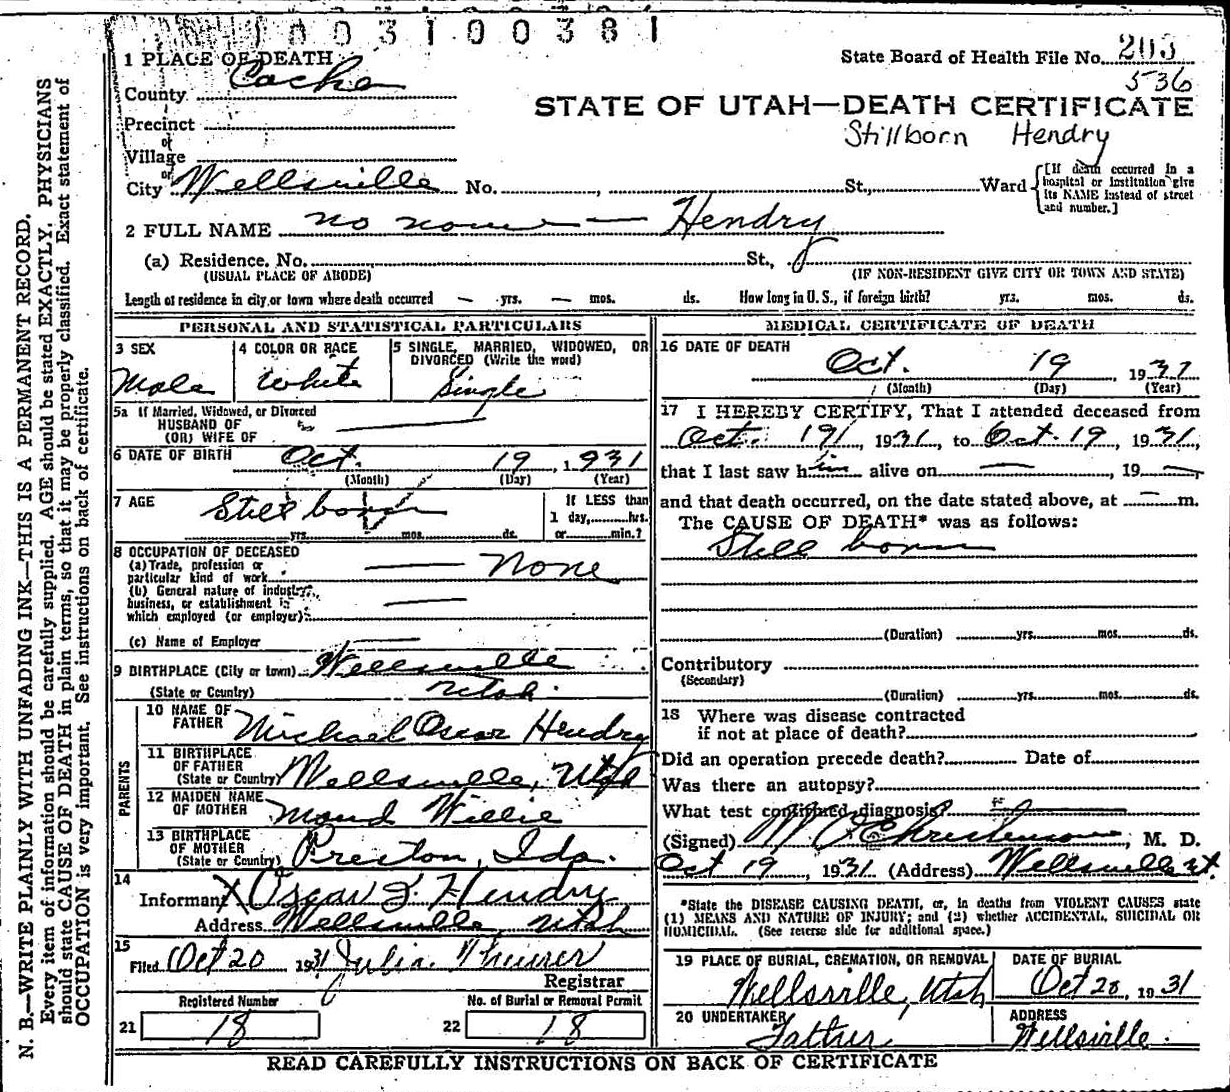 1003100381
1 PLACE OF DEATH
State Board of Health File No. 203
536
County Cache
STATE OF UTAH—DEATH CERTIFICATE
Precinct
Stillborn Hendry
or
Village
or
City Wellsville No. , St., Ward
[If death occurred in a hospital or institution give its NAME instead of street and number.]
2 FULL NAME no name — Hendry
(a) Residence. No. St.,
(USUAL PLACE OF ABODE) (IF NON-RESIDENT GIVE CITY OR TOWN AND STATE)
Length of residence in city or town where death occurred — yrs. — mos. ds. How long in U. S., if foreign birth? yrs. mos. ds.
PERSONAL AND STATISTICAL PARTICULARS
3 SEX
Male
4 COLOR OR RACE
White
5 SINGLE, MARRIED, WIDOWED, OR
DIVORCED (Write the word)
Single
5a If Married, Widowed, or Divorced
HUSBAND OF
(OR) WIFE OF
6 DATE OF BIRTH Oct. 19, 1931
(Month) (Day) (Year)
7 AGE
Still born
yrs. mos. ds.
If LESS than
1 day, hrs.
or min.?
8 OCCUPATION OF DECEASED
(a) Trade, profession or
particular kind of work — None
(b) General nature of industry,
business, or establishment in
which employed (or employer)
(c) Name of Employer
9 BIRTHPLACE (City or town) Wellsville
(State or Country) Utah.
PARENTS
10 NAME OF
FATHER Michael Oscar Hendry
11 BIRTHPLACE
OF FATHER
(State or Country) Wellsville, Utah
12 MAIDEN NAME
OF MOTHER Maud Willie
13 BIRTHPLACE
OF MOTHER
(State or Country) Preston, Ida.
14
Informant X Oscar Hendry
Address Wellsville, Utah
15
Filed Oct 20 1931 Julia Theurer
Registrar
Registered Number
21 18
No. of Burial or Removal Permit
22 18
MEDICAL CERTIFICATE OF DEATH
16 DATE OF DEATH
Oct. 19, 1931
(Month) (Day) (Year)
17 I HEREBY CERTIFY, That I attended deceased from
Oct. 19, 1931, to Oct. 19, 1931,
that I last saw him alive on —, 19—,
and that death occurred, on the date stated above, at — m.
The CAUSE OF DEATH* was as follows:
Still born
(Duration) yrs. mos. ds.
Contributory
(Secondary)
(Duration) yrs. mos. ds.
18 Where was disease contracted
if not at place of death?
Did an operation precede death? Date of
Was there an autopsy?
What test confirmed diagnosis?
(Signed) Christenson, M. D.
Oct 19, 1931 (Address) Wellsville Ut.
*State the DISEASE CAUSING DEATH, or, in deaths from VIOLENT CAUSES state
(1) MEANS AND NATURE OF INJURY; and (2) whether ACCIDENTAL, SUICIDAL OR
HOMICIDAL. (See reverse side for additional space.)
19 PLACE OF BURIAL, CREMATION, OR REMOVAL
Wellsville, Utah
DATE OF BURIAL
Oct 20, 1931
20 UNDERTAKER
Father
ADDRESS
Wellsville.
READ CAREFULLY INSTRUCTIONS ON BACK OF CERTIFICATE
N. B.—WRITE PLAINLY WITH UNFADING INK—THIS IS A PERMANENT RECORD.
Every item of information should be carefully supplied. AGE should be stated EXACTLY. PHYSICIANS
should state CAUSE OF DEATH in plain terms, so that it may be properly classified. Exact statement of
OCCUPATION is very important. See instructions on back of certificate.